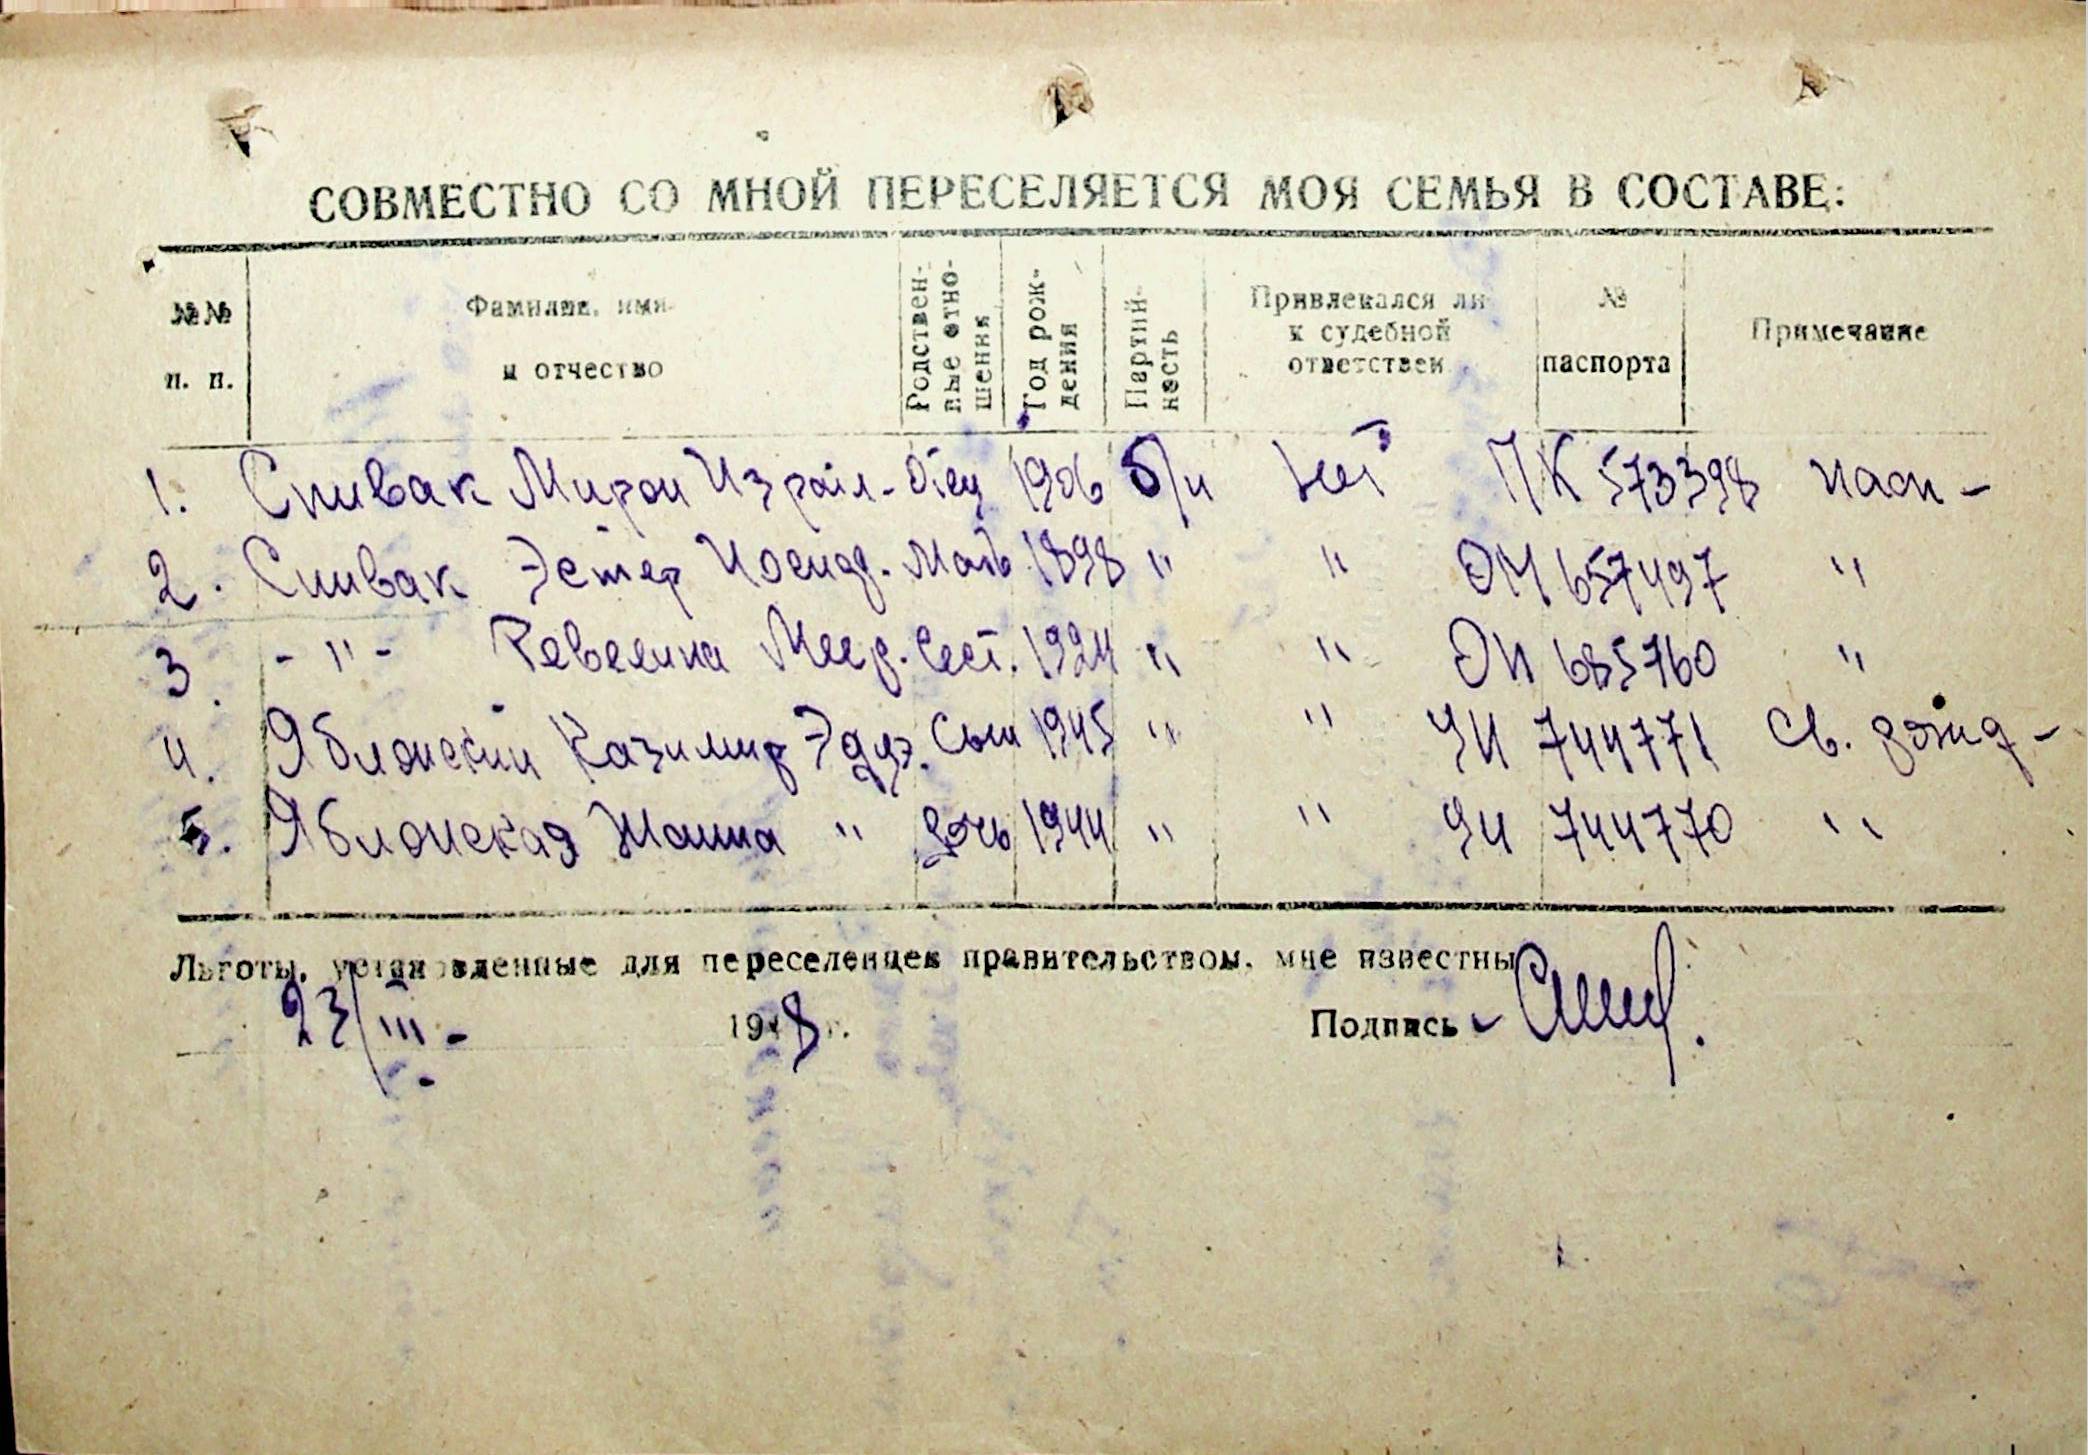 СОВМЕСТНО СО МНОЙ ПЕРЕСЕЛЯЕТСЯ МОЯ СЕМЬЯ В СОСТАВЕ:
№№ п. п. Фамилия, имя и отчество Родствен-ные отно-шения Год рож-дения Партий-ность Привлекался ли к судебной ответствен № паспорта Примечание
1. Спивак Мирон Израил- Отец 1906 б/п Нет ПК 573398 пасп-
2. Спивак Эстер Мать 1898 " " 657497 "
3. - " - Ревекина Меер. Сест. 1924 " " 685760 "
4. Яблонский Казимир Эдуэ. Сын 1945 " " 744771 Св. рожд-
5. Яблонская Жанна " дочь 1944 " " 744770 "
Льготы, установленные для переселенцев правительством, мне известны
23/III- 1948 г. Подпись -